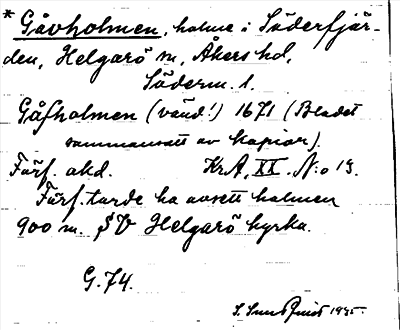 * Gåvholmen, holme i Söderfjär-
den, Helgarö sn, Åkers hd,
Söderm. l.
Gåfholmen (vänd!) 1671 (Bladet
sammansatt av kopior).
Förf. okd. KrA, XX. N:o 19.
Förf. torde ha avsett holmen
900 m. SV Helgarö kyrka.
G. 74.
S. 1945.